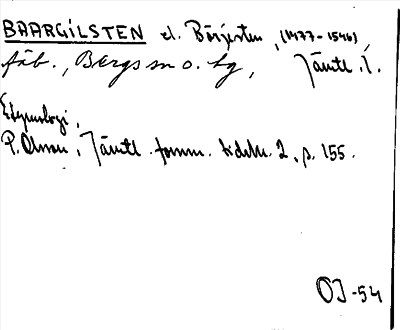 BAARGILSTEN el. Börjesten, (1477-1546),
fäb., Bergs sn o. tg, Jämtl. l.
Etymologi,
P. Olsson, Jämtl. fornm. tidskr. 2, p. 155.
OJ-54